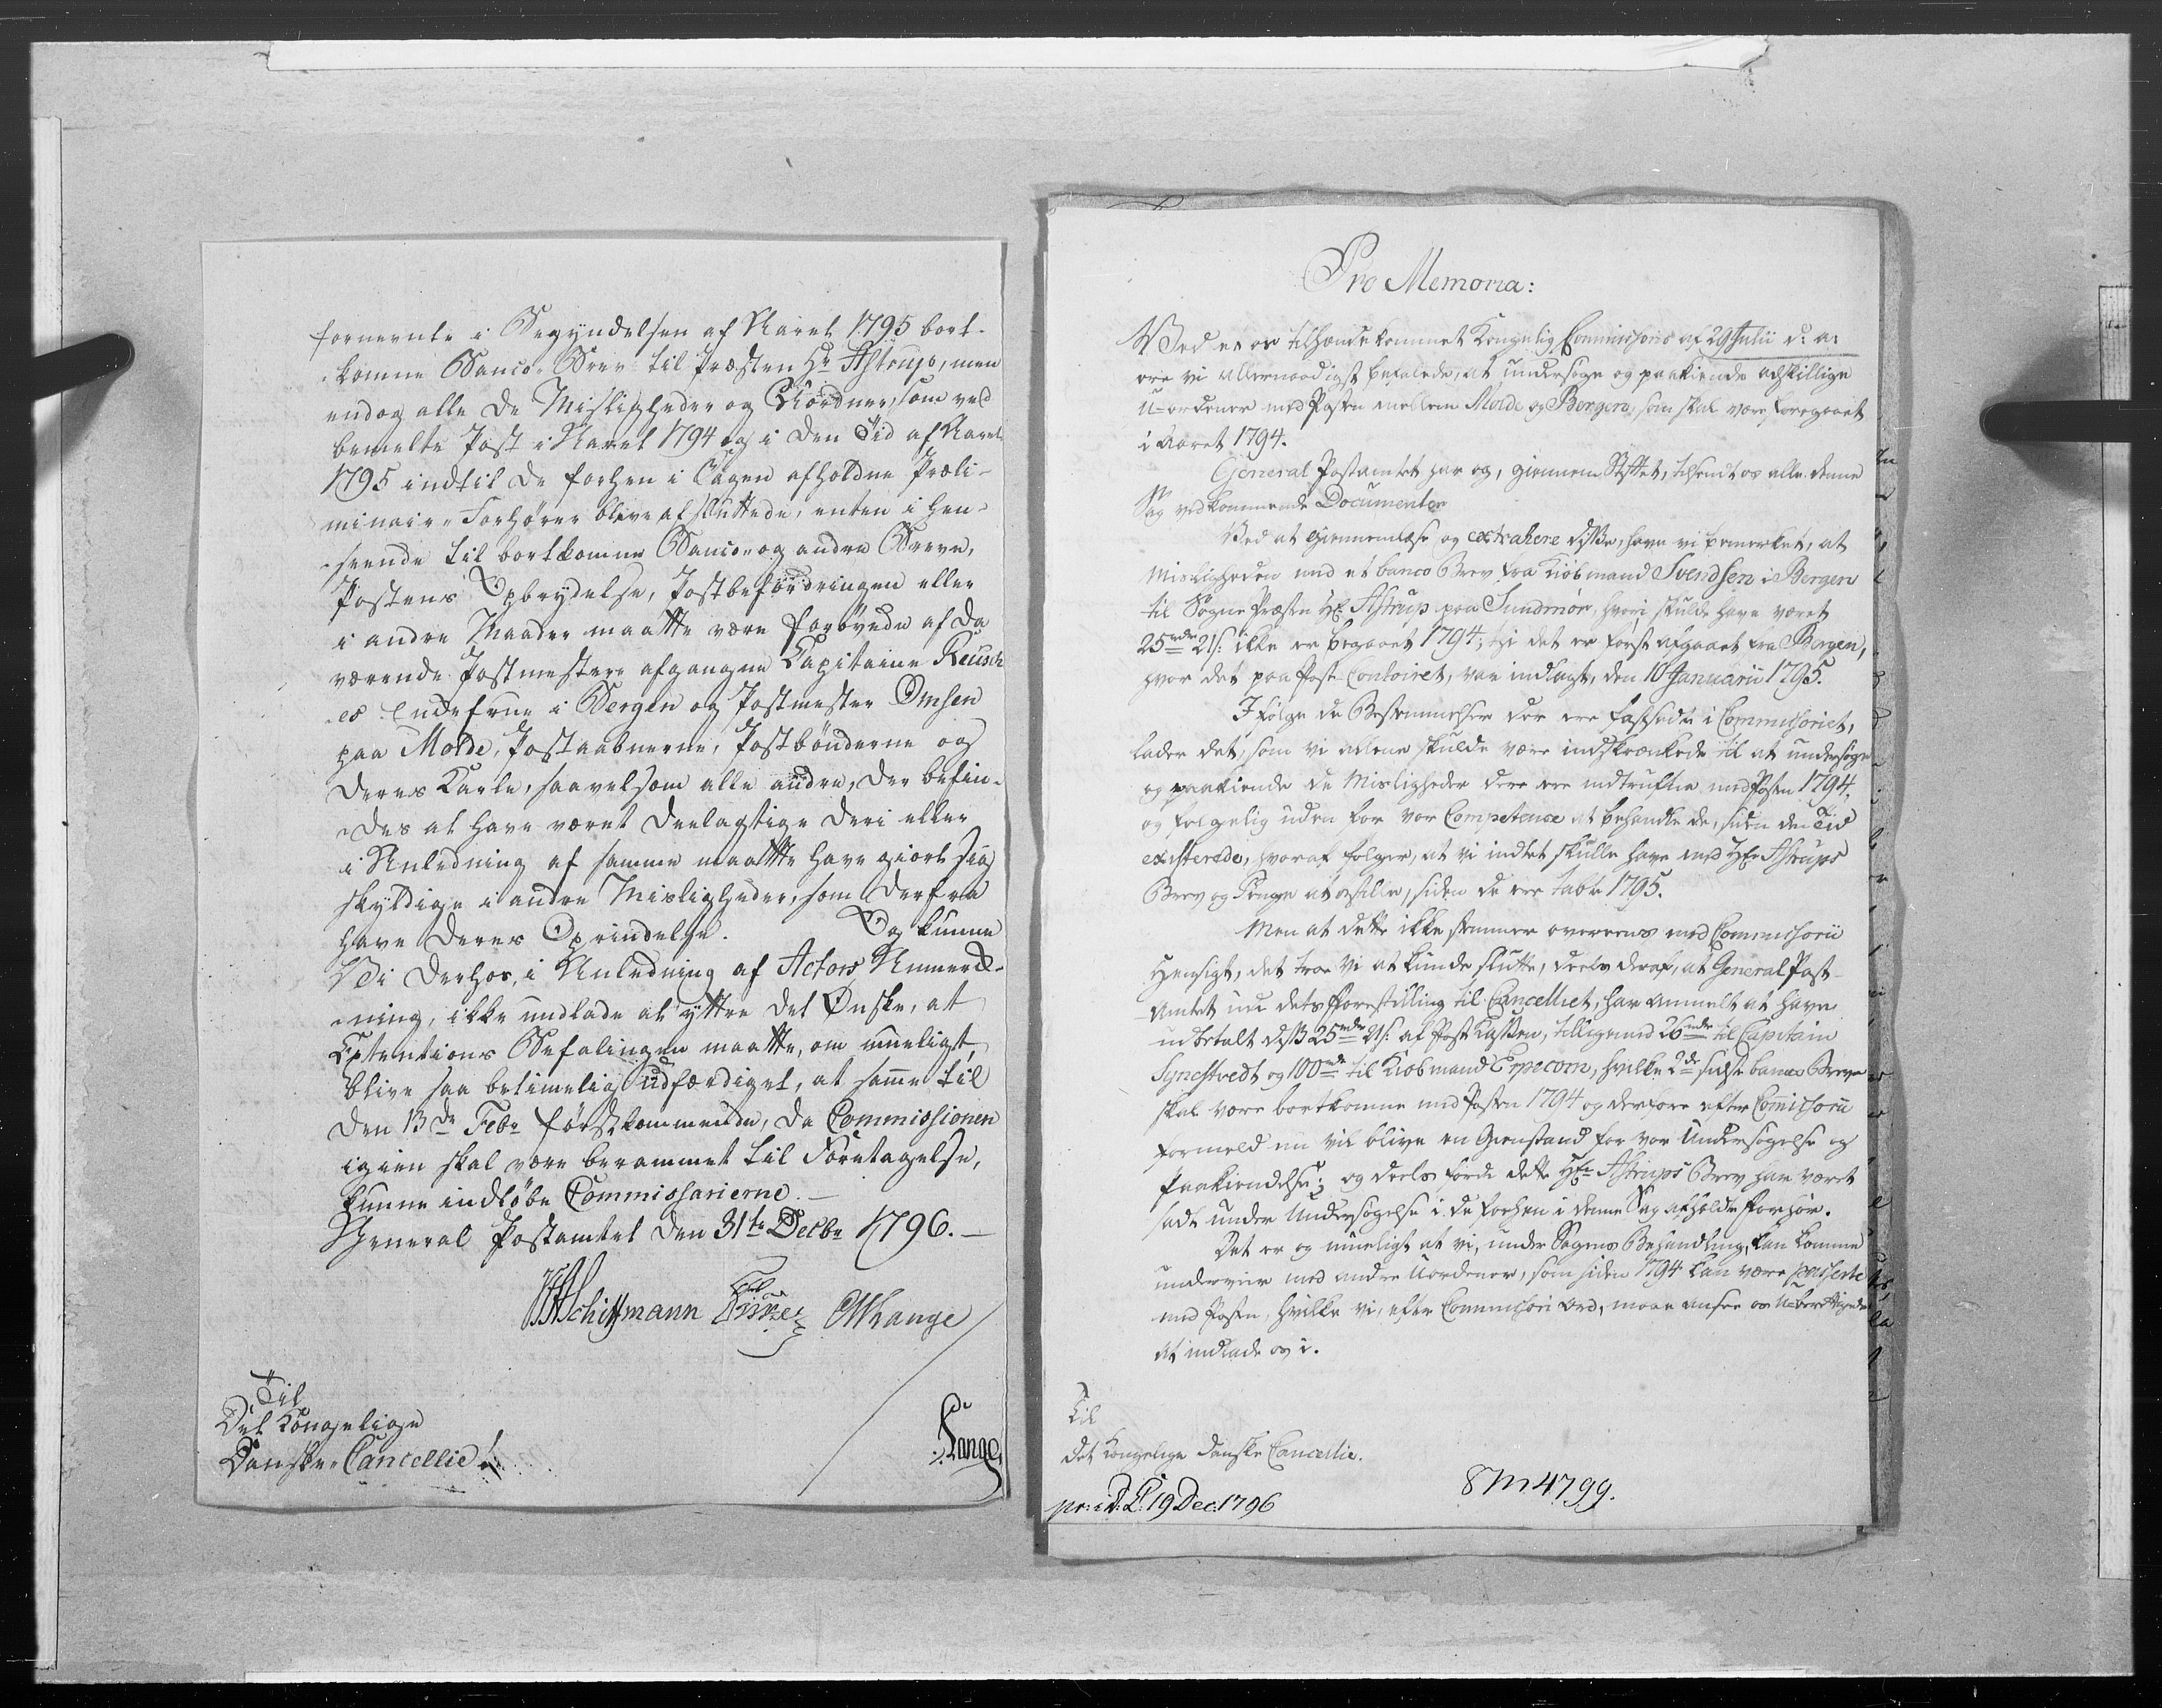 fornevnte i Begyndelsen af Aaret 1795 bort-
komne Banco-Brev til Præsten Hr Astrup, men
endog alle de Misligheder og Uordner, som ved
bemelte Post i Aaret 1794 og i den Tid af Aaret
1795 indtil de forhen i Sagen afholdne Præli-
minair-Forhører blive afsluttede, enten i Hen-
seende til bortkomne Banco- og andre Breve,
Postens Opbrydelse, Postbefordringen eller
i andre Maader maatte være forøvede af da
værende Postmestere afgangne Capitaine Reusch
es Enkefrue i Bergen og Postmester Omsen
paa Molde, Postaabnerne, Postbønderne og
deres Karle, saavelsom alle andre, der befin-
des at have været deelagtige deri eller
i Anledning af samme maatte have giort sig
skyldige i andre Misligheder, som derfra
have deres Oprindelse. Og kunne
Vi derhos, i Anledning af Actors Anmerk-
ning, ikke undlade at yttre det Ønske, at
Extentions Befalingen maatte, om mueligt,
blive saa betimelig udfærdiget, at samme til
den 13de Febr førstkommende, da Commissionen
igien skal være berammet til Foretagelse,
kunne indløbe Commissarierne. —
General Postamtet den 31te Decbr 1796. —
Schiffmann Lange
Til
Det Kongelige
Danske Cancellie
Lange
Pro Memoria:
Ved et os tilhændekommet Kongelig Commissoris af 29 Julii d: a:
ere vi allernaadigst befalede, at undersøge og paakiende adskillige
U-ordener med Posten mellem Molde og Bergen, som skal være foregaaet
i Aaret 1794.
General Postamtet har og, giennem Stiftet, tilsendt os alle denne
Sag vedkommende Documenter
Ved at giennemlæse og extrahere disse, have vi bemerket, at
Misligheden med et banco Brev fra Kiøbmand Svendsen i Bergen
til Sogne Præsten Hr Astrup paa Sundmør, hvori skulde have været
25rdr 21s: ikke er begaaet 1794; thi det er først afgaaet fra Bergen,
hvor det paa Post-Contoiret, var indlagt, den 10 Januarii 1795.
I følge de Bestemmelser der ere fastsadte i Commissoriet,
lader det, som vi allene skulde være indskrænkede til at undersøge
og paakiende de Misligheder der ere indtrufne med Posten 1794,
og følgelig uden for vor Competence at behandle de, siden den Tid
existerede, hvoraf følger, at vi indtet skulle have med Hr Astrups
Brev og Penge at bestille, siden de ere tabte 1795.
Men at dette ikke stemmer overeens med Commissorii
Hensigt, det troe Vi at kunde slutte, deels deraf, at General Post-
Amtet in dets Forestilling til Cancelliet, har anmelt at have
udbetalt disse 25rdr 21s: af Post Kassen, tilligemed 26rdr til Capitain
Synestvedt og 100rdr til Kiøbmand Epecorn, hvilke 2de sidste banco Breve
skal være bortkomne med Posten 1794 og derfore efter Comissorii
formeld en vil blive en Gienstand for vor Undersøgelse og
Paakiendelse; og deels fordi dette Hr Astrups Brev har været
sadt under Undersøgelse i de forhen i denne Sag afholdte Forhør.
Det er og mueligt at vi, under Sagens Behandling, kan komme
underveir med andre Uordener, som siden 1794 kan være passerte
med Posten, hvilke vi, efter Commissorii Ord, maae ansee os U-berettigede
at indlade os i.
Til
det Kongelige danske Cancellie.
pr: i D: C: 19 Dec: 1796
8 M 4799.